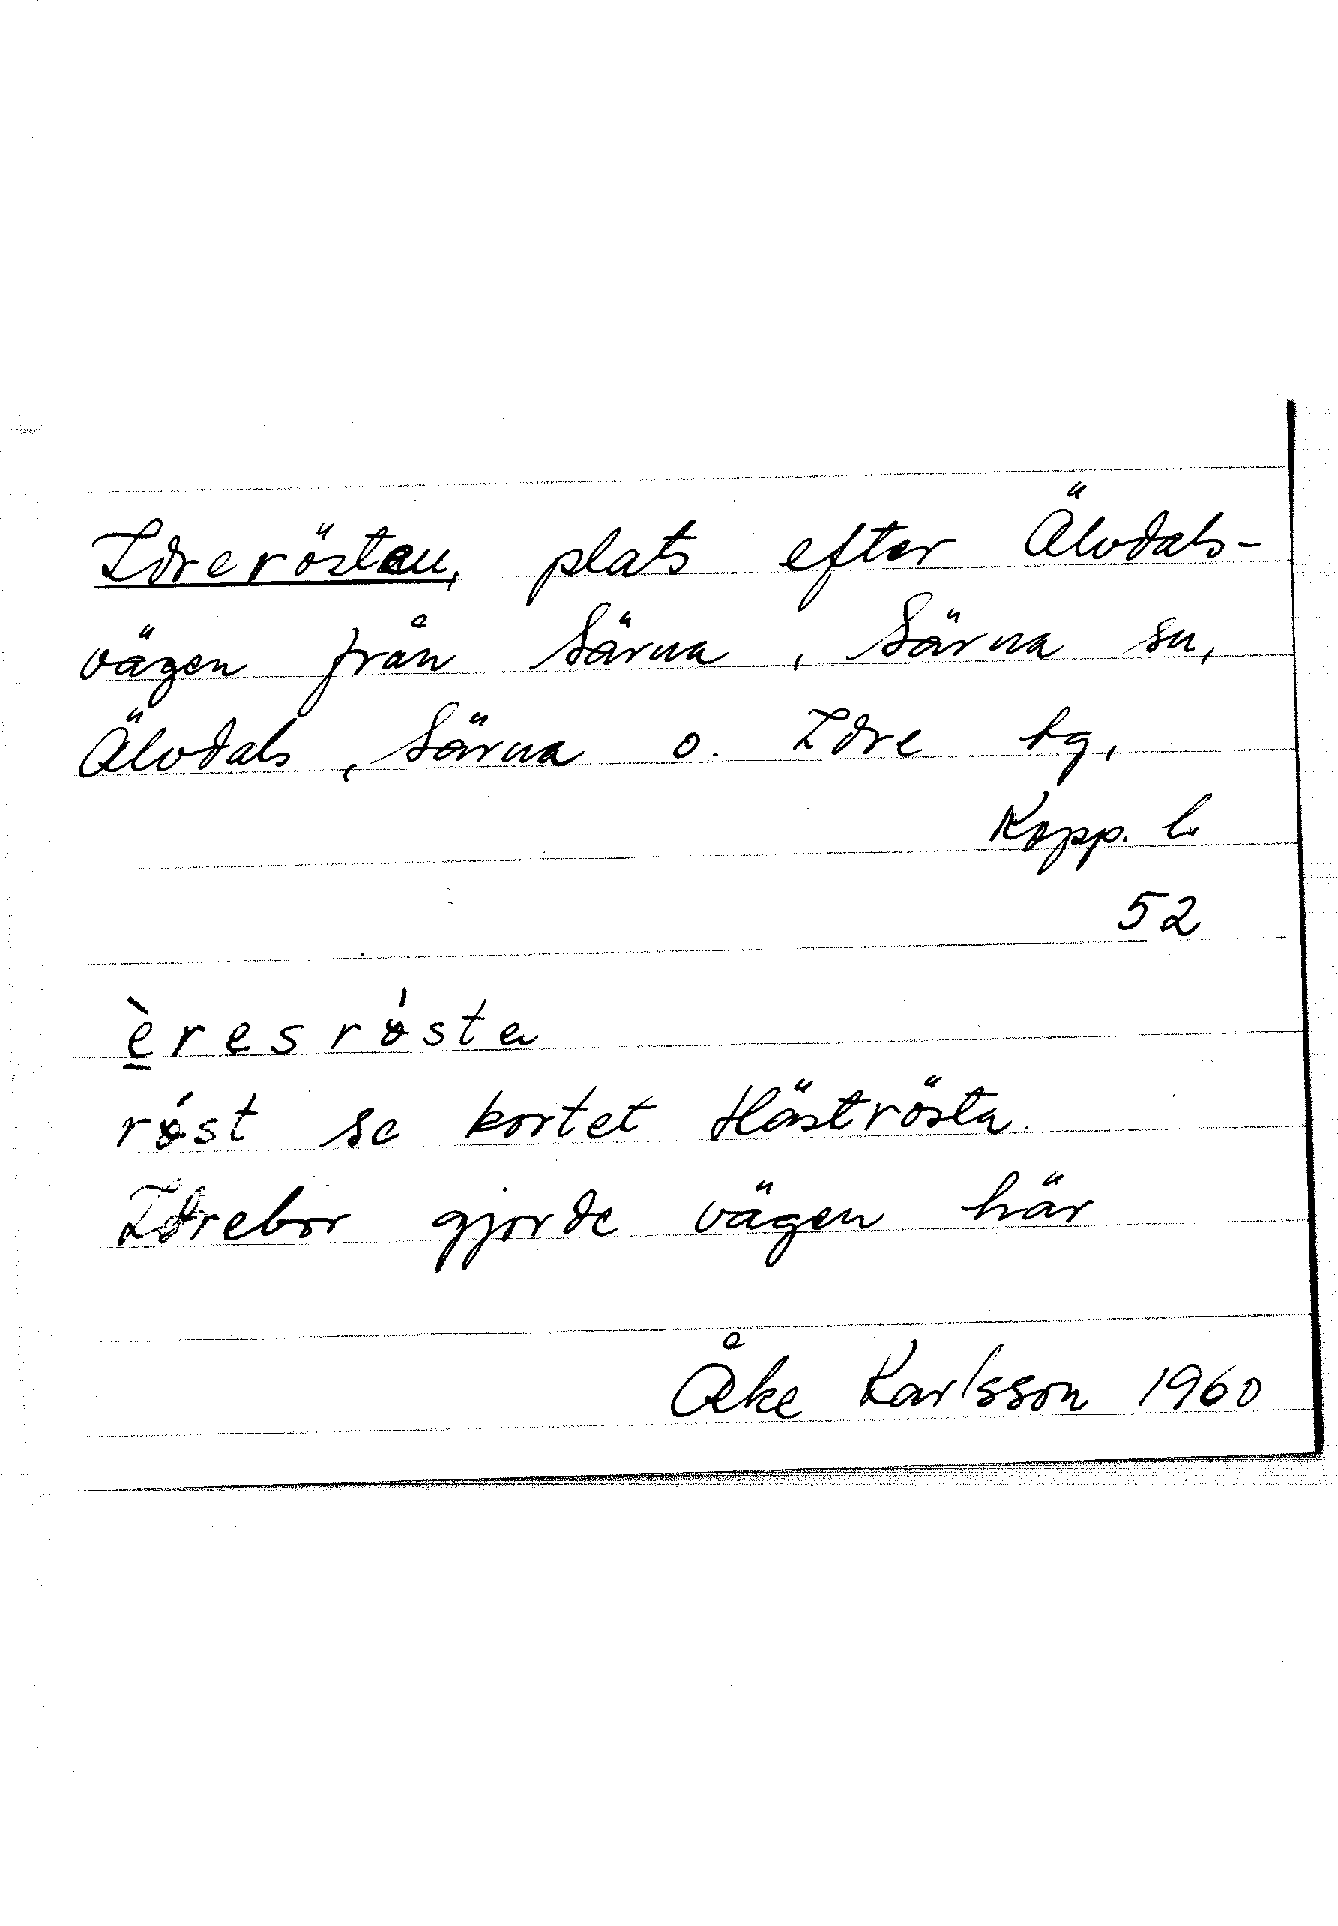 Idrerösten, plats efter Älvdals-
vägen från Särna, Särna sn,
Älvdals, Särna o. Idre tg,
Kopp. l.
52
èresrǿsta
rǿst se kortet Häströsta.
Idrebor gjorde vägen här
Åke Karlsson 1960